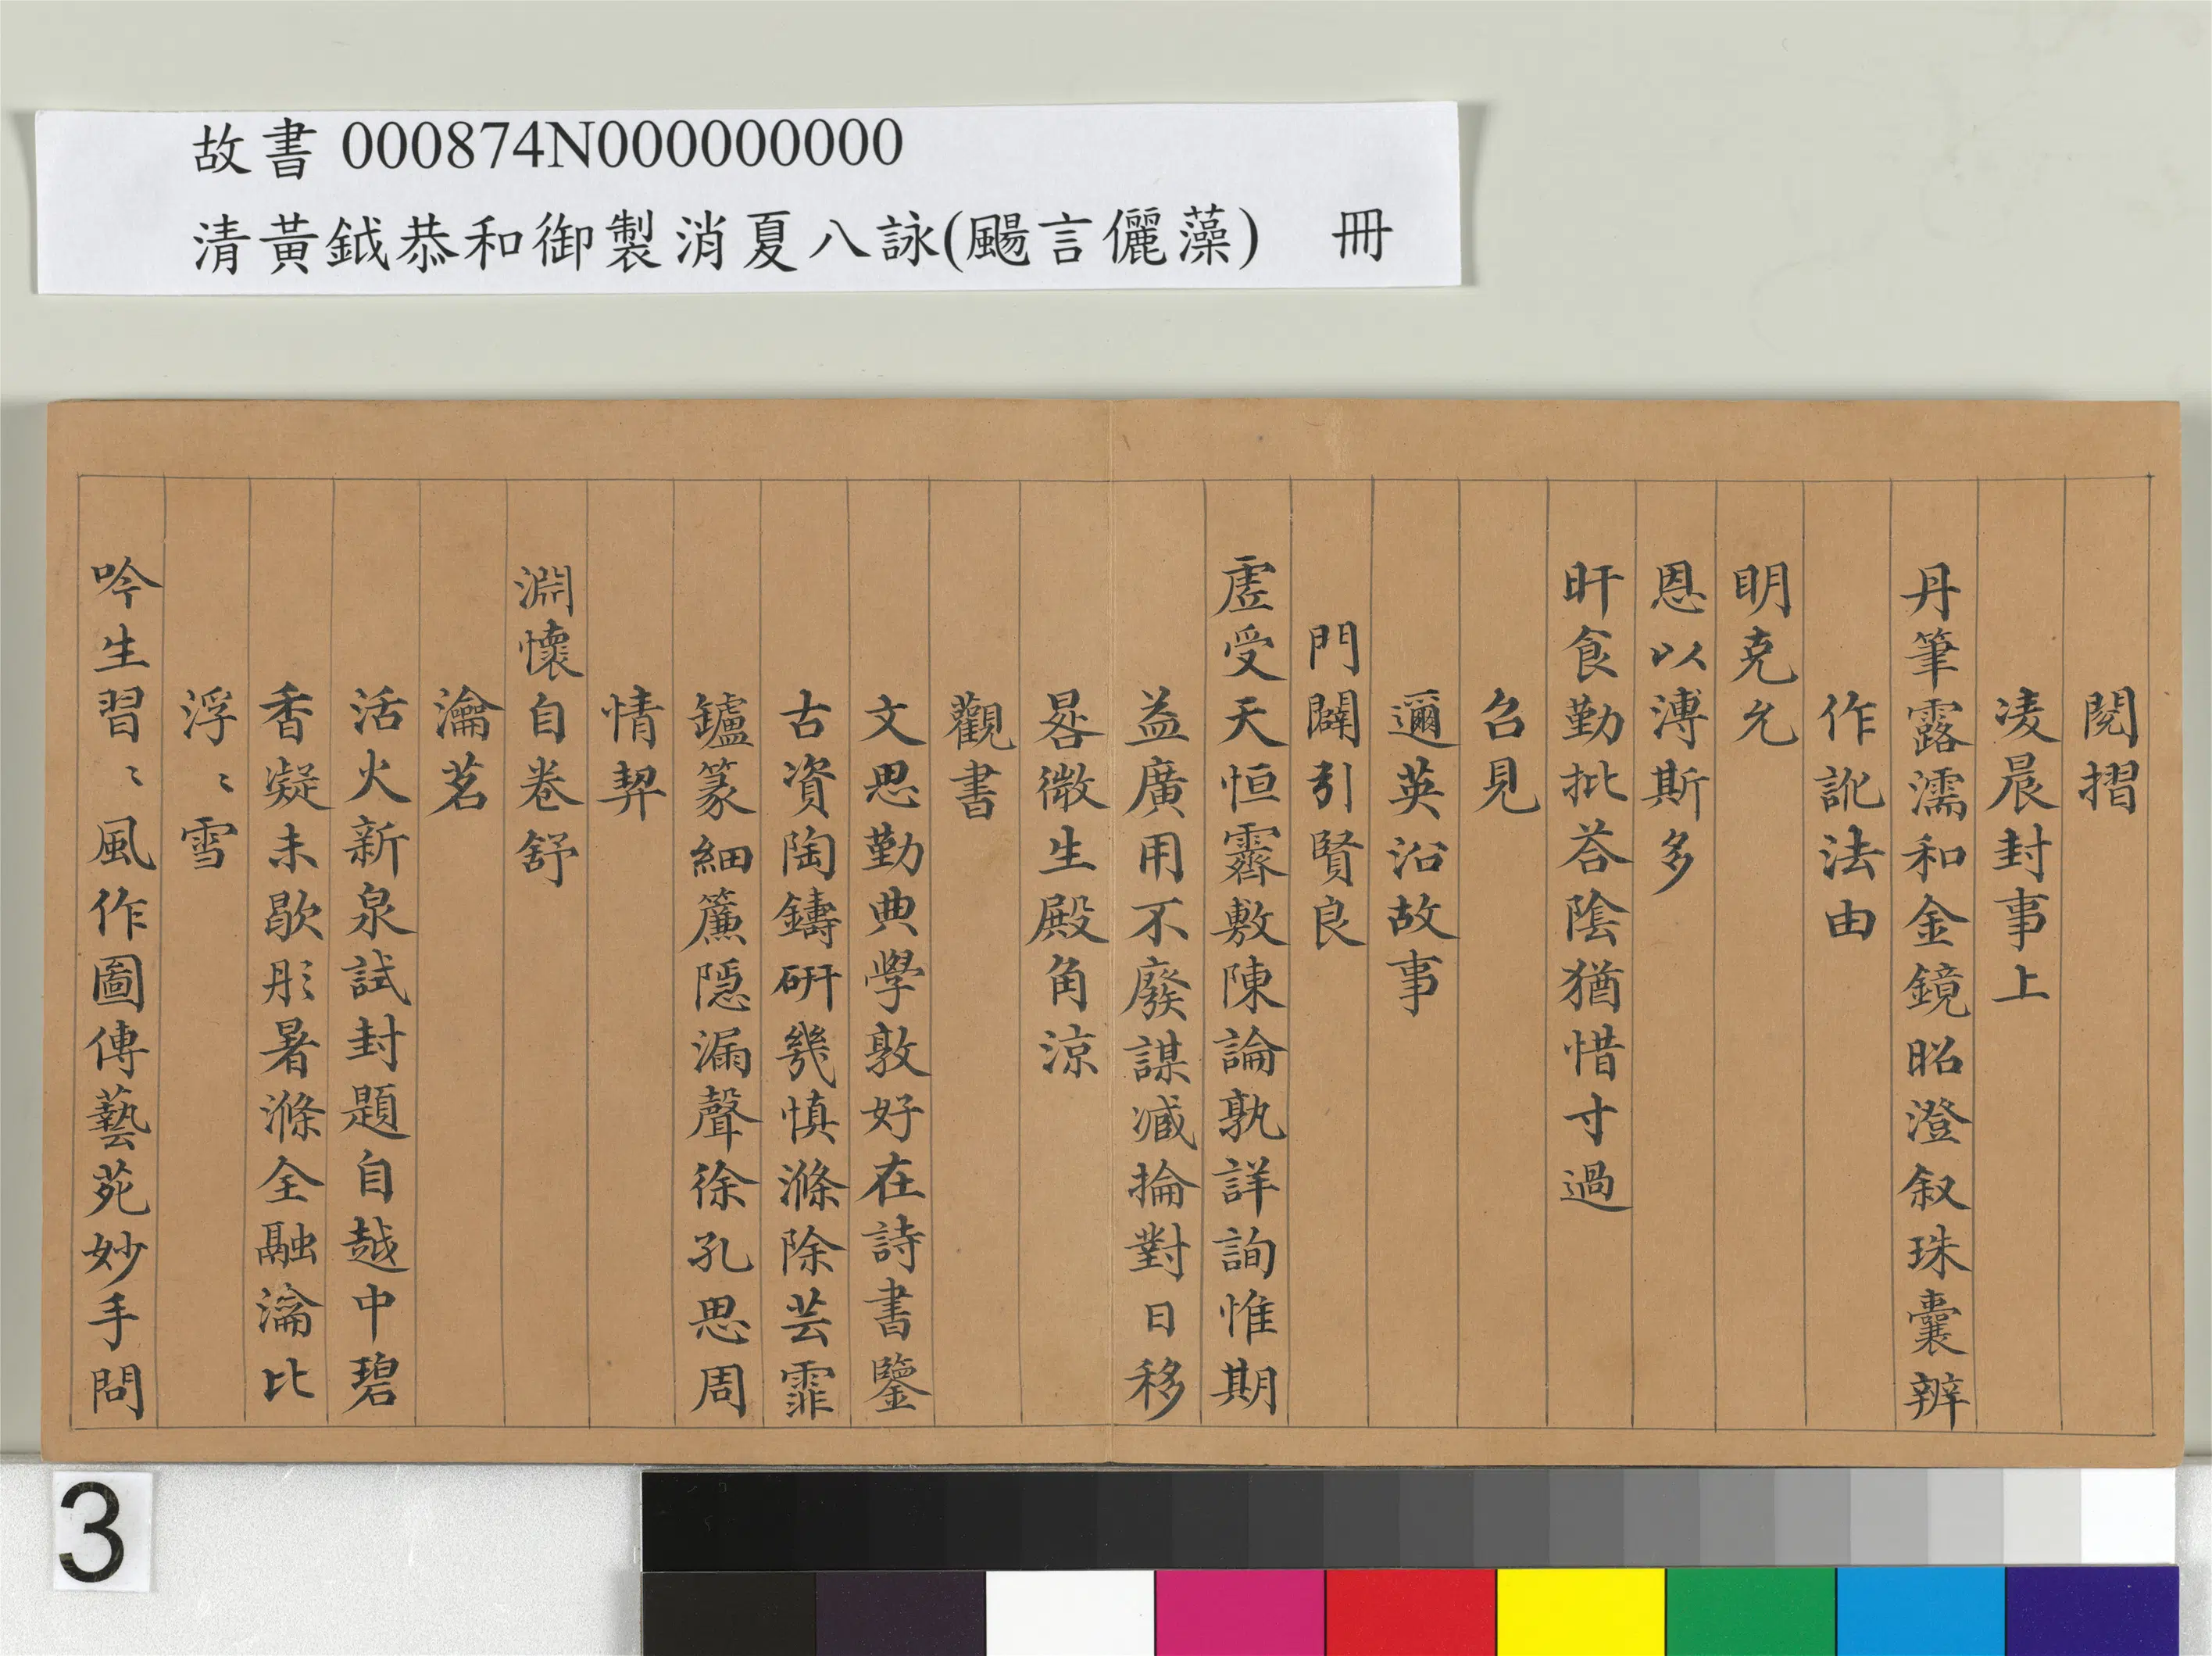 故書 000874N000000000
清黃鉞恭和御製消夏八詠(颺言儷藻)　冊
閱摺
凌晨封事上
丹筆露濡和金鏡昭澄叙珠囊辨
作訛法由
明克允
恩以溥斯多
旰食勤批荅陰猶惜寸過
召見
邇英沿故事
門闢引賢良
虛受天恒霽敷陳論孰詳詢惟期
益廣用不廢謀臧掄對日移
晷微生殿角涼
觀書
文思勤典學敦好在詩書鑒
古資陶鑄研幾慎滌除芸霏
鑪篆細簾隱漏聲徐孔思周
情契
淵懷自卷舒
瀹茗
活火新泉試封題自越中碧
香凝未歇彤暑滌全融瀹比
浮〻雪
吟生習〻風作圖傳藝苑妙手問
3